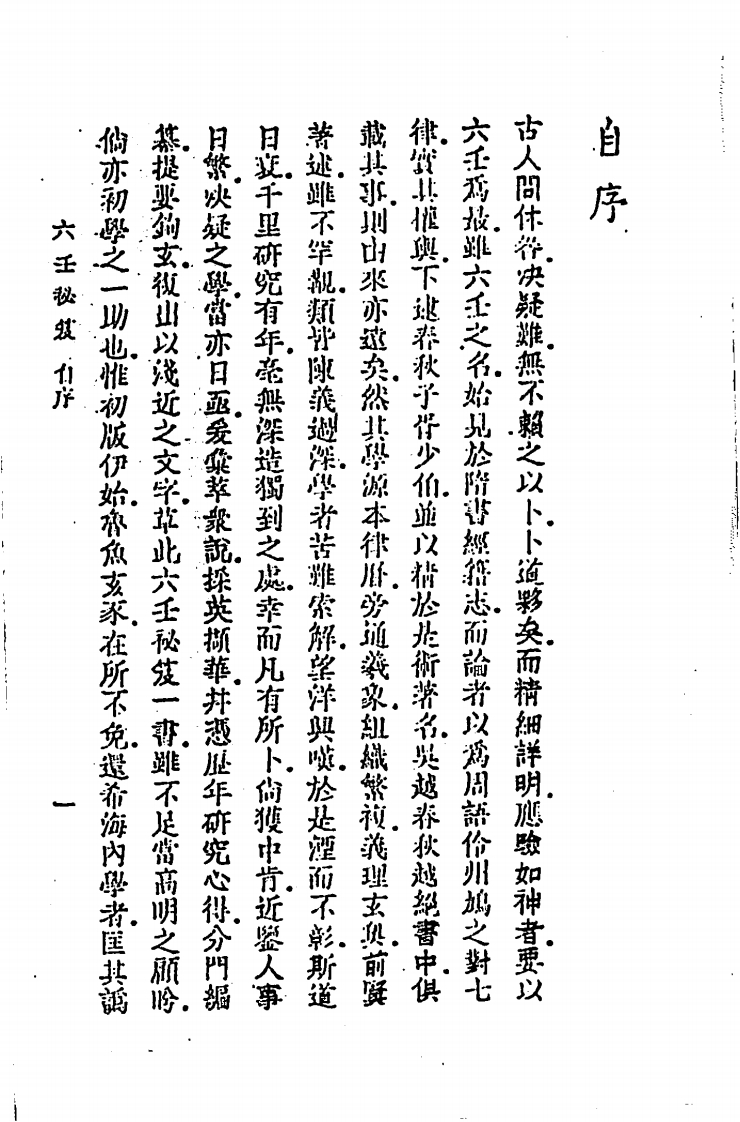 自序
古人問休咎.決疑難.無不賴之以卜.卜道夥矣.而精細詳明.應驗如神者.要以
六壬爲最.雖六壬之名.始見於隋書經籍志.而論者以爲周語伶州鳩之對七
律.實其權輿.下逮春秋子胥少伯.並以精於是術著名.吳越春秋越絕書中.俱
載其事.則由來亦遠矣.然其學源本律曆.旁通羲象.組織繁複.義理玄奧.前賢
著述.雖不罕觀.類皆陳義過深.學者苦難索解.望洋興嘆.於是湮而不彰.斯道
日衰.千里研究有年.毫無深造獨到之處.幸而凡有所卜.倘獲中肯.近鑒人事
日繁.決疑之學.當亦日亟.爰彙萃衆說.採英擷華.幷憑歷年研究心得.分門編
纂.提要鉤玄.復出以淺近之文字.草此六壬秘笈一書.雖不足當高明之顧盼.
倘亦初學之一助也.惟初版伊始.魯魚玄豕.在所不免.還希海內學者.匡其譌
六壬秘笈 自序
一